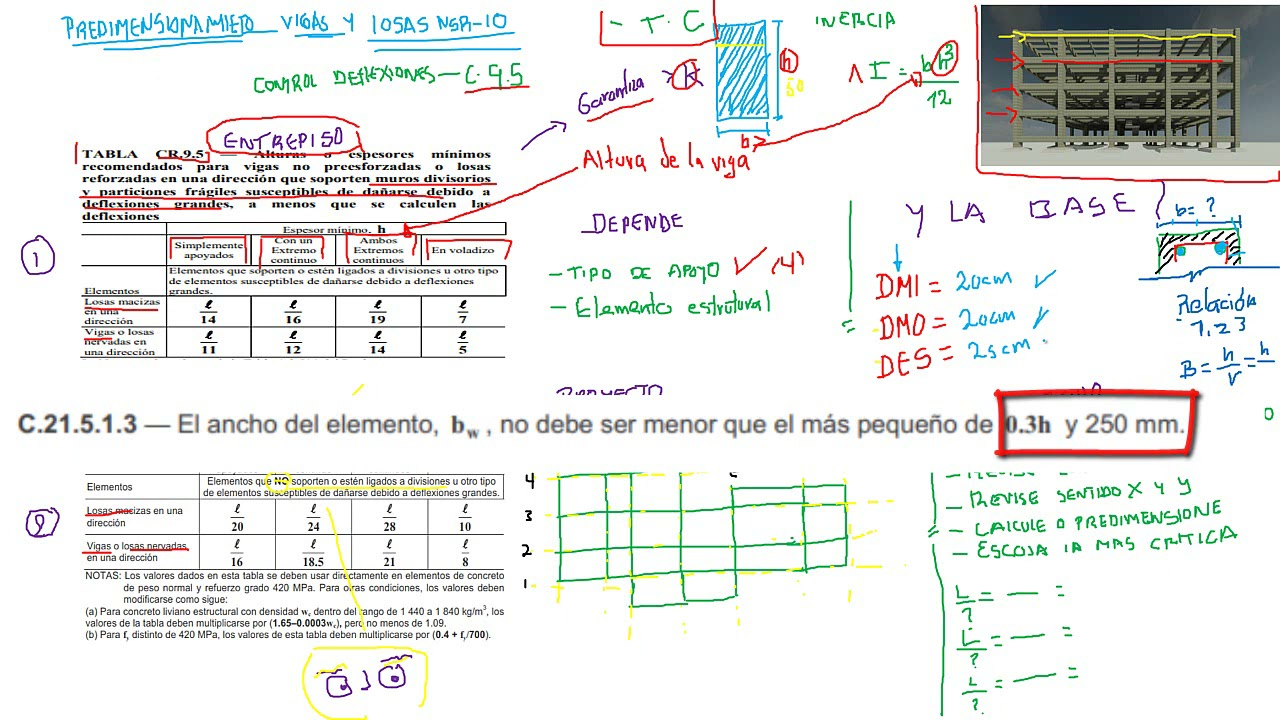 PREDIMENSIONAMIETO VIGAS Y LOSAS NSR-10
CONTROL DEFLEXIONES — C. 9.5
- T. C
INERCIA
h
50
b
I = b h³
12
Garantiza
Altura de la viga
ENTREPISO
TABLA CR.9.5 — Alturas o espesores mínimos
recomendados para vigas no preesforzadas o losas
reforzadas en una dirección que soporten muros divisorios
y particiones frágiles susceptibles de dañarse debido a
deflexiones grandes, a menos que se calculen las
deflexiones
Espesor mínimo, h
Simplemente apoyados
Con un Extremo continuo
Ambos Extremos continuos
En voladizo
Elementos
Elementos que soporten o estén ligados a divisiones u otro tipo
de elementos susceptibles de dañarse debido a deflexiones
grandes.
Losas macizas en una dirección
ℓ/14 ℓ/16 ℓ/19 ℓ/7
Vigas o losas nervadas en una dirección
ℓ/11 ℓ/12 ℓ/14 ℓ/5
1
DEPENDE
- TIPO DE APOYO (4)
- Elemento estrutural
Y LA BASE
b = ?
DMI = 20cm
DMO = 20cm
DES = 25cm
Relación
1,2 3
B = h = h
PROYECTO
C.21.5.1.3 — El ancho del elemento, bw, no debe ser menor que el más pequeño de 0.3h y 250 mm.
2
Elementos
Elementos que NO soporten o estén ligados a divisiones u otro tipo
de elementos susceptibles de dañarse debido a deflexiones grandes.
Losas macizas en una
dirección
ℓ/20 ℓ/24 ℓ/28 ℓ/10
Vigas o losas nervadas
en una dirección
ℓ/16 ℓ/18.5 ℓ/21 ℓ/8
NOTAS: Los valores dados en esta tabla se deben usar directamente en elementos de concreto
de peso normal y refuerzo grado 420 MPa. Para otras condiciones, los valores deben
modificarse como sigue:
(a) Para concreto liviano estructural con densidad wc dentro del rango de 1 440 a 1 840 kg/m³, los
valores de la tabla deben multiplicarse por (1.65–0.0003wc), pero no menos de 1.09.
(b) Para fy distinto de 420 MPa, los valores de esta tabla deben multiplicarse por (0.4 + fy/700).
4
3
2
1
- REVISE SENTIDO X Y Y
- CALCULE O PREDIMENSIONE
- ESCOJA LA MAS CRITICA
L/? = — =
L/? = — =
L/? = — =